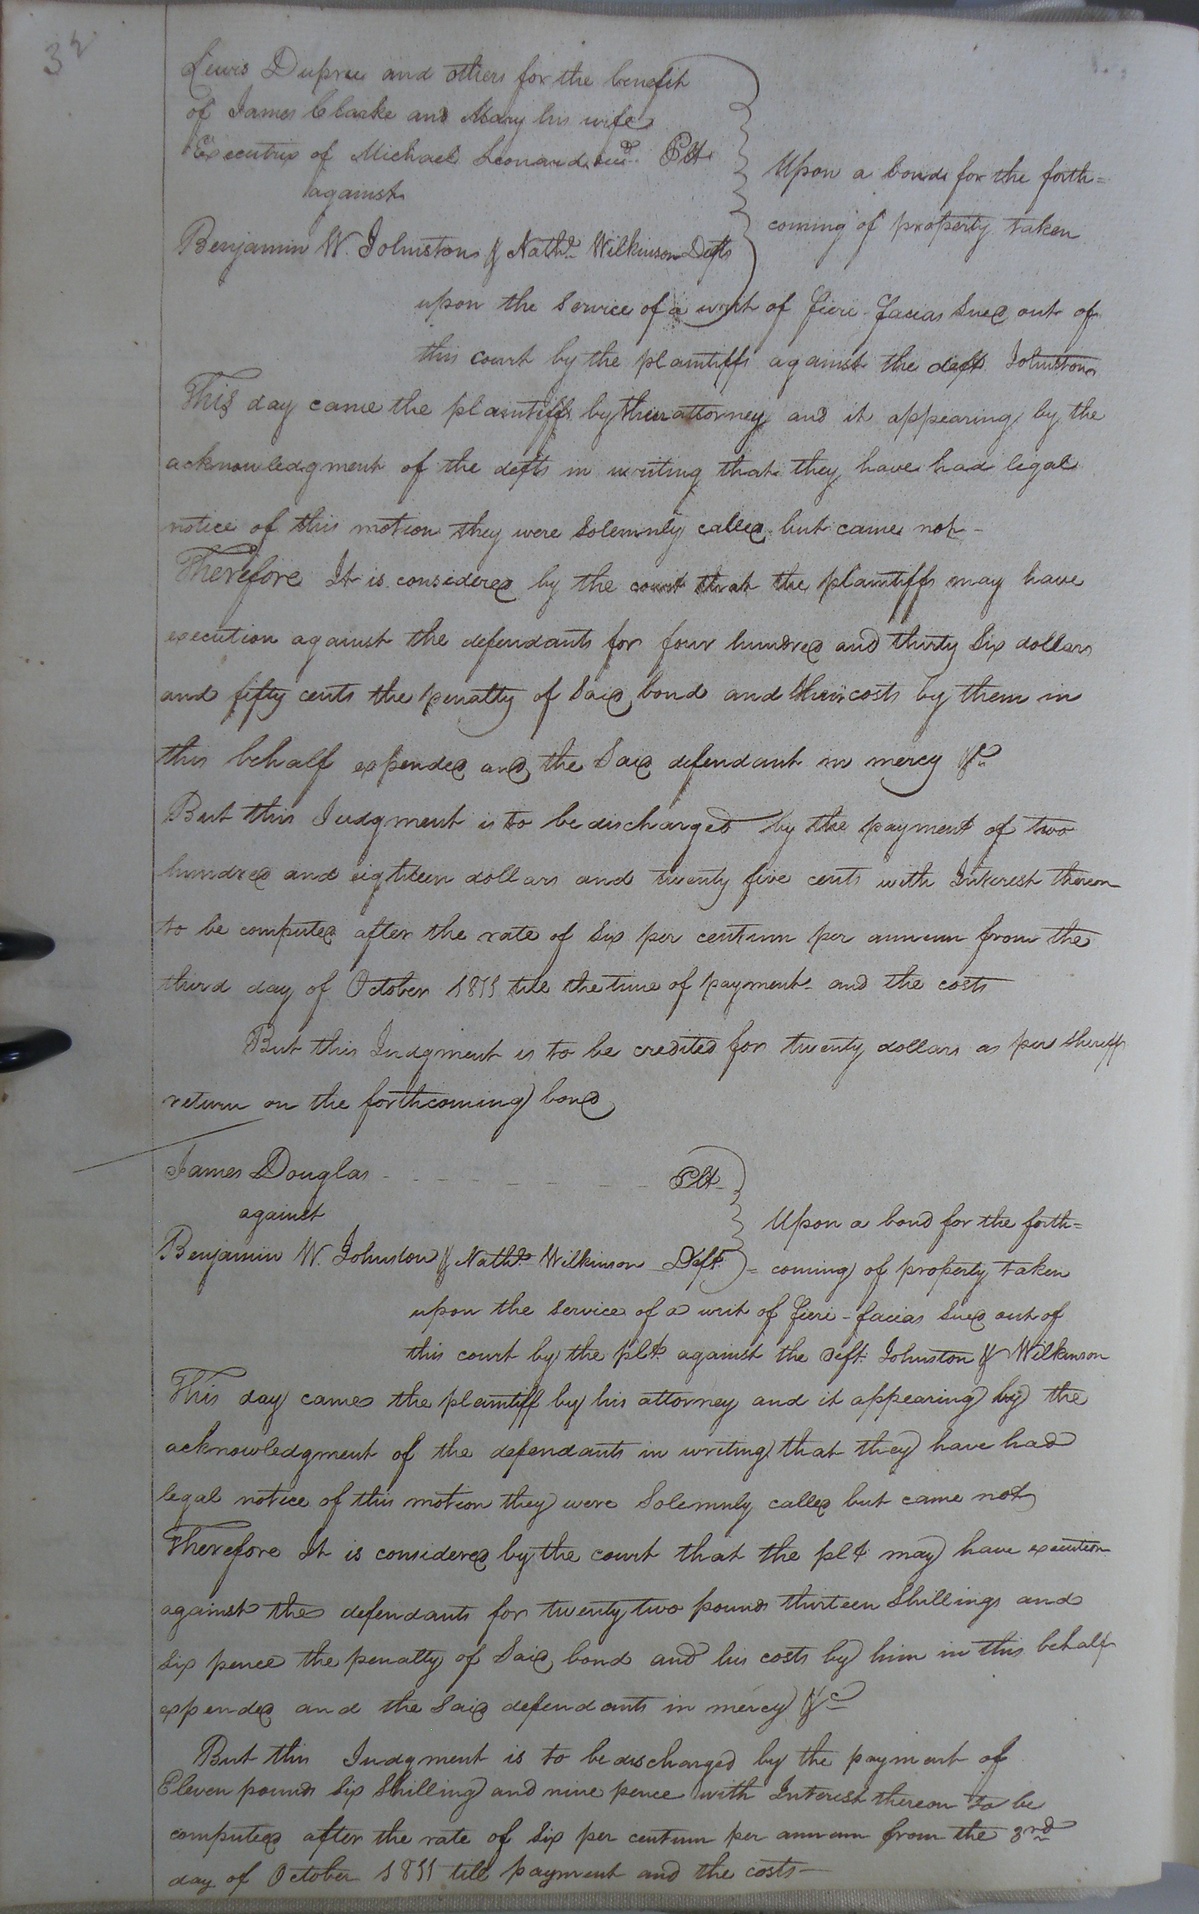 32
Lewis Dupree and others for the benefit
of James Clarke and Mary his wife
Executrix of Michael Leonard decd. Plt
against
Benjamin W. Johnston & Nathl. Wilkinson Defts
Upon a bond for the forth=
coming of property taken
upon the Service of a writ of fieri-facias Sued out of
this court by the plaintiffs against the deft. Johnston
This day came the plaintiffs by their attorney and it appearing by the
acknowledgment of the defts in writing that they have had legal
notice of this motion they were Solemnly called but came not -
Therefore It is considered by the court that the plaintiffs may have
execution against the defendants for four hundred and thirty Six dollars
and fifty cents the penalty of Said bond and their costs by them in
this behalf expended and the Said defendant in mercy &c
But this Judgment is to be discharged by the payment of two
hundred and eighteen dollars and twenty five cents with Interest thereon
to be computed after the rate of Six per centum per annum from the
third day of October 1811 till the time of payment and the costs
But this Judgment is to be credited for twenty dollars as per Sheriff
return on the forthcoming bond
James Douglas - - - - - - - - Plt
against
Benjamin W. Johnston & Nathl. Wilkinson Deft
Upon a bond for the forth=
= coming of property taken
upon the Service of a writ of fieri-facias Sued out of
this court by the plt. against the Deft. Johnston & Wilkinson
This day came the plaintiff by his attorney and it appearing by the
acknowledgment of the defendants in writing that they have had
legal notice of this motion they were Solemnly called but came not
Therefore It is considered by the court that the plt may have execution
against the defendants for twenty two pounds thirteen Shillings and
Six pence the penalty of Said bond and his costs by him in this behalf
expended and the Said defendants in mercy &c
But this Judgment is to be discharged by the payment of
Eleven pounds Six Shilling and nine pence with Interest thereon to be
computed after the rate of Six per centum per annum from the 3rd
day of October 1811 till payment and the costs—